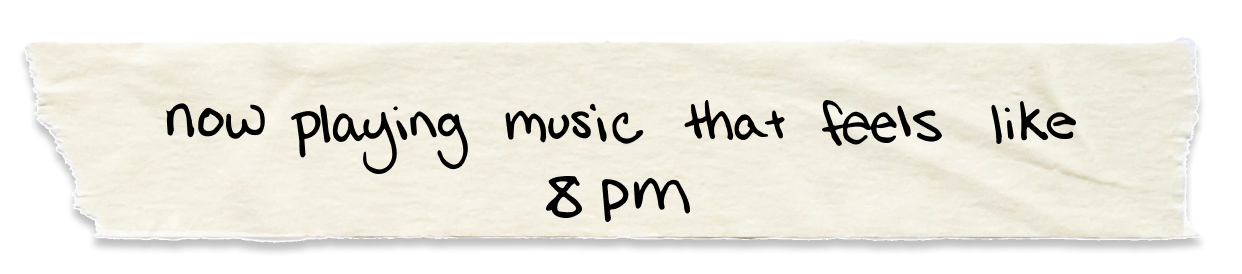 now playing music that feels like
8 pm